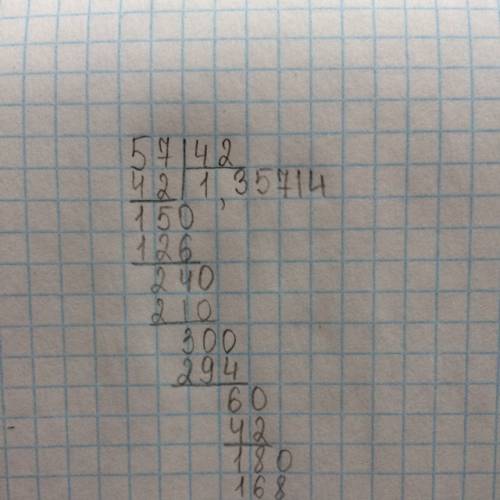 57 42
42 1,35714
150
126
240
210
300
294
60
42
180
168